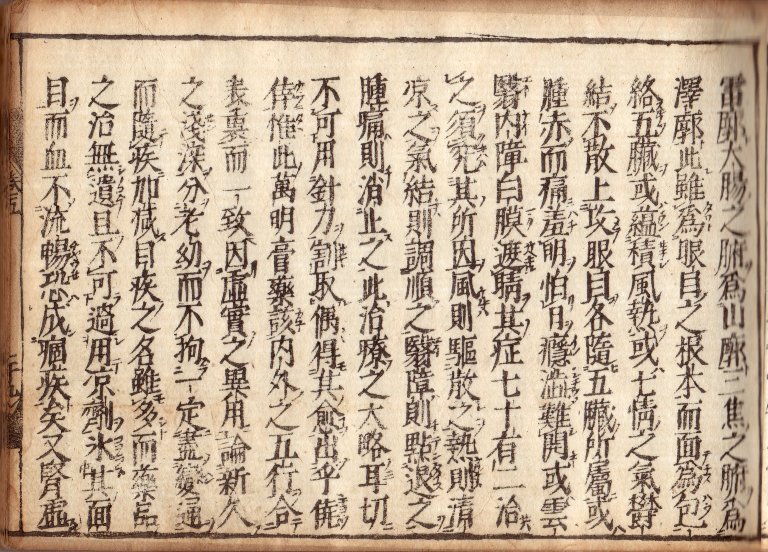 雷廓大腸之腑為山廓三焦之腑為
澤廓此雖為眼目之根本而面為包
絡五臟或蘊積風熱或七情之氣欝
結不散上攻眼目各隨五臟所屬或
腫赤而痛羞明怕日癮澁難開或雲
翳内障白膜遮睛其症七十有二治
之須究其所因風則驅散之熱則清
凉之氣結則調順之翳障則點退之
腫痛則消止之此治療之大略耳切
不可用針刀割取偶得其愈出乎僥
倖惟此萬明膏藥該内外之五行合
表裏而一致因虛實之異用論新久
之淺深分老幼而不拘一定盡變通
而隨疾加減目疾之名雖多而藥品
之治無遺且不可過用凉劑氷其面
目而血不流暢恐成痼疾矣又腎虛
卷五